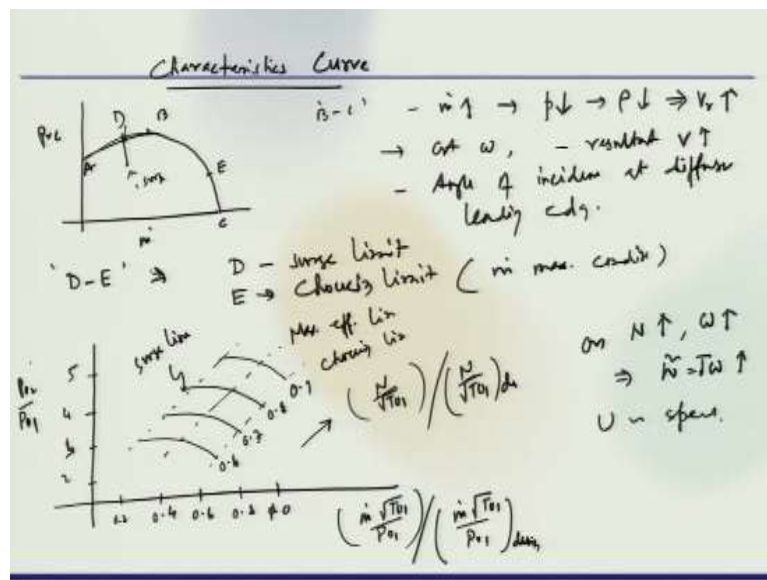 Characteristics Curve
Prc
A
D
B
E
C
surge
ṁ
'B-C' - ṁ↑ → p↓ → ρ↓ ⇒ Vr↑
→ at ω, - resultant V↑
- Angle of incidence at diffuser
leading edge.
'D-E' ⇒ D - surge limit
E → Choking limit ( ṁ max. condition )
surge line
Max. eff. line
choking line
P02/P01
5
4
3
2
0.9
0.8
0.7
0.6
0.2 0.4 0.6 0.8 1.0
(N/√T01)/(N/√T01)des
(ṁ√T01/P01)/(ṁ√T01/P01)design
on N↑, ω↑
⇒ Ẇ=Tω↑
U ~ speed.